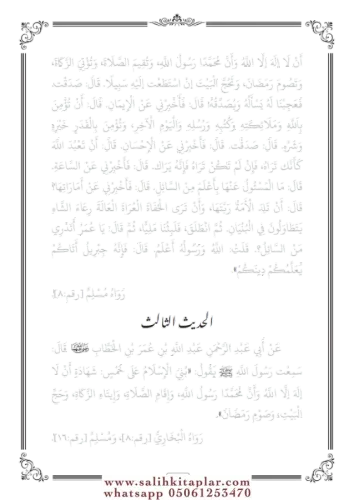 أَنْ لَا إِلَهَ إِلَّا اللهُ وَأَنَّ مُحَمَّدًا رَسُولُ اللهِ، وَتُقِيمَ الصَّلَاةَ، وَتُؤْتِيَ الزَّكَاةَ،
وَتَصُومَ رَمَضَانَ، وَتَحُجَّ الْبَيْتَ إِنْ اسْتَطَعْت إلَيْهِ سَبِيلًا. قَالَ: صَدَقْت.
فَعَجِبْنَا لَهُ يَسْأَلُهُ وَيُصَدِّقُهُ! قَالَ: فَأَخْبِرْنِي عَنْ الْإِيمَانِ. قَالَ: أَنْ تُؤْمِنَ
بِاللهِ وَمَلَائِكَتِهِ وَكُتُبِهِ وَرُسُلِهِ وَالْيَوْمِ الْآخِرِ، وَتُؤْمِنَ بِالْقَدَرِ خَيْرِهِ
وَشَرِّهِ. قَالَ: صَدَقْت. قَالَ: فَأَخْبِرْنِي عَنْ الْإِحْسَانِ. قَالَ: أَنْ تَعْبُدَ اللهَ
كَأَنَّك تَرَاهُ، فَإِنْ لَمْ تَكُنْ تَرَاهُ فَإِنَّهُ يَرَاك. قَالَ: فَأَخْبِرْنِي عَنْ السَّاعَةِ.
قَالَ: مَا الْمَسْئُولُ عَنْهَا بِأَعْلَمَ مِنْ السَّائِلِ. قَالَ: فَأَخْبِرْنِي عَنْ أَمَارَاتِهَا؟
قَالَ: أَنْ تَلِدَ الْأَمَةُ رَبَّتَهَا، وَأَنْ تَرَى الْحُفَاةَ الْعُرَاةَ الْعَالَةَ رِعَاءَ الشَّاءِ
يَتَطَاوَلُونَ فِي الْبُنْيَانِ. ثُمَّ انْطَلَقَ، فَلَبِثْنَا مَلِيًّا، ثُمَّ قَالَ: يَا عُمَرُ أَتَدْرِي
مَنْ السَّائِلُ؟. قَلَتْ: اللهُ وَرَسُولُهُ أَعْلَمُ. قَالَ: فَإِنَّهُ جِبْرِيلُ أَتَاكُمْ
يُعَلِّمُكُمْ دِينَكُمْ».
رَوَاهُ مُسْلِمٌ [رقم:٨].
الحديث الثالث
عَنْ أَبِي عَبْدِ الرَّحْمَنِ عَبْدِ اللهِ بْنِ عُمَرَ بْنِ الْخَطَّابِ قَالَ:
سَمِعْت رَسُولَ اللهِ ﷺ يَقُولُ: «بُنِيَ الْإِسْلَامُ عَلَى خَمْسٍ: شَهَادَةِ أَنْ لَا
إلَهَ إلَّا اللهُ وَأَنَّ مُحَمَّدًا رَسُولُ اللهِ، وَإِقَامِ الصَّلَاةِ، وَإِيتَاءِ الزَّكَاةِ، وَحَجِّ
الْبَيْتِ، وَصَوْمِ رَمَضَانَ».
رَوَاهُ الْبُخَارِيُّ [رقم:٨]، وَمُسْلِمٌ [رقم:١٦].
www.salihkitaplar.com
whatsapp 05061253470